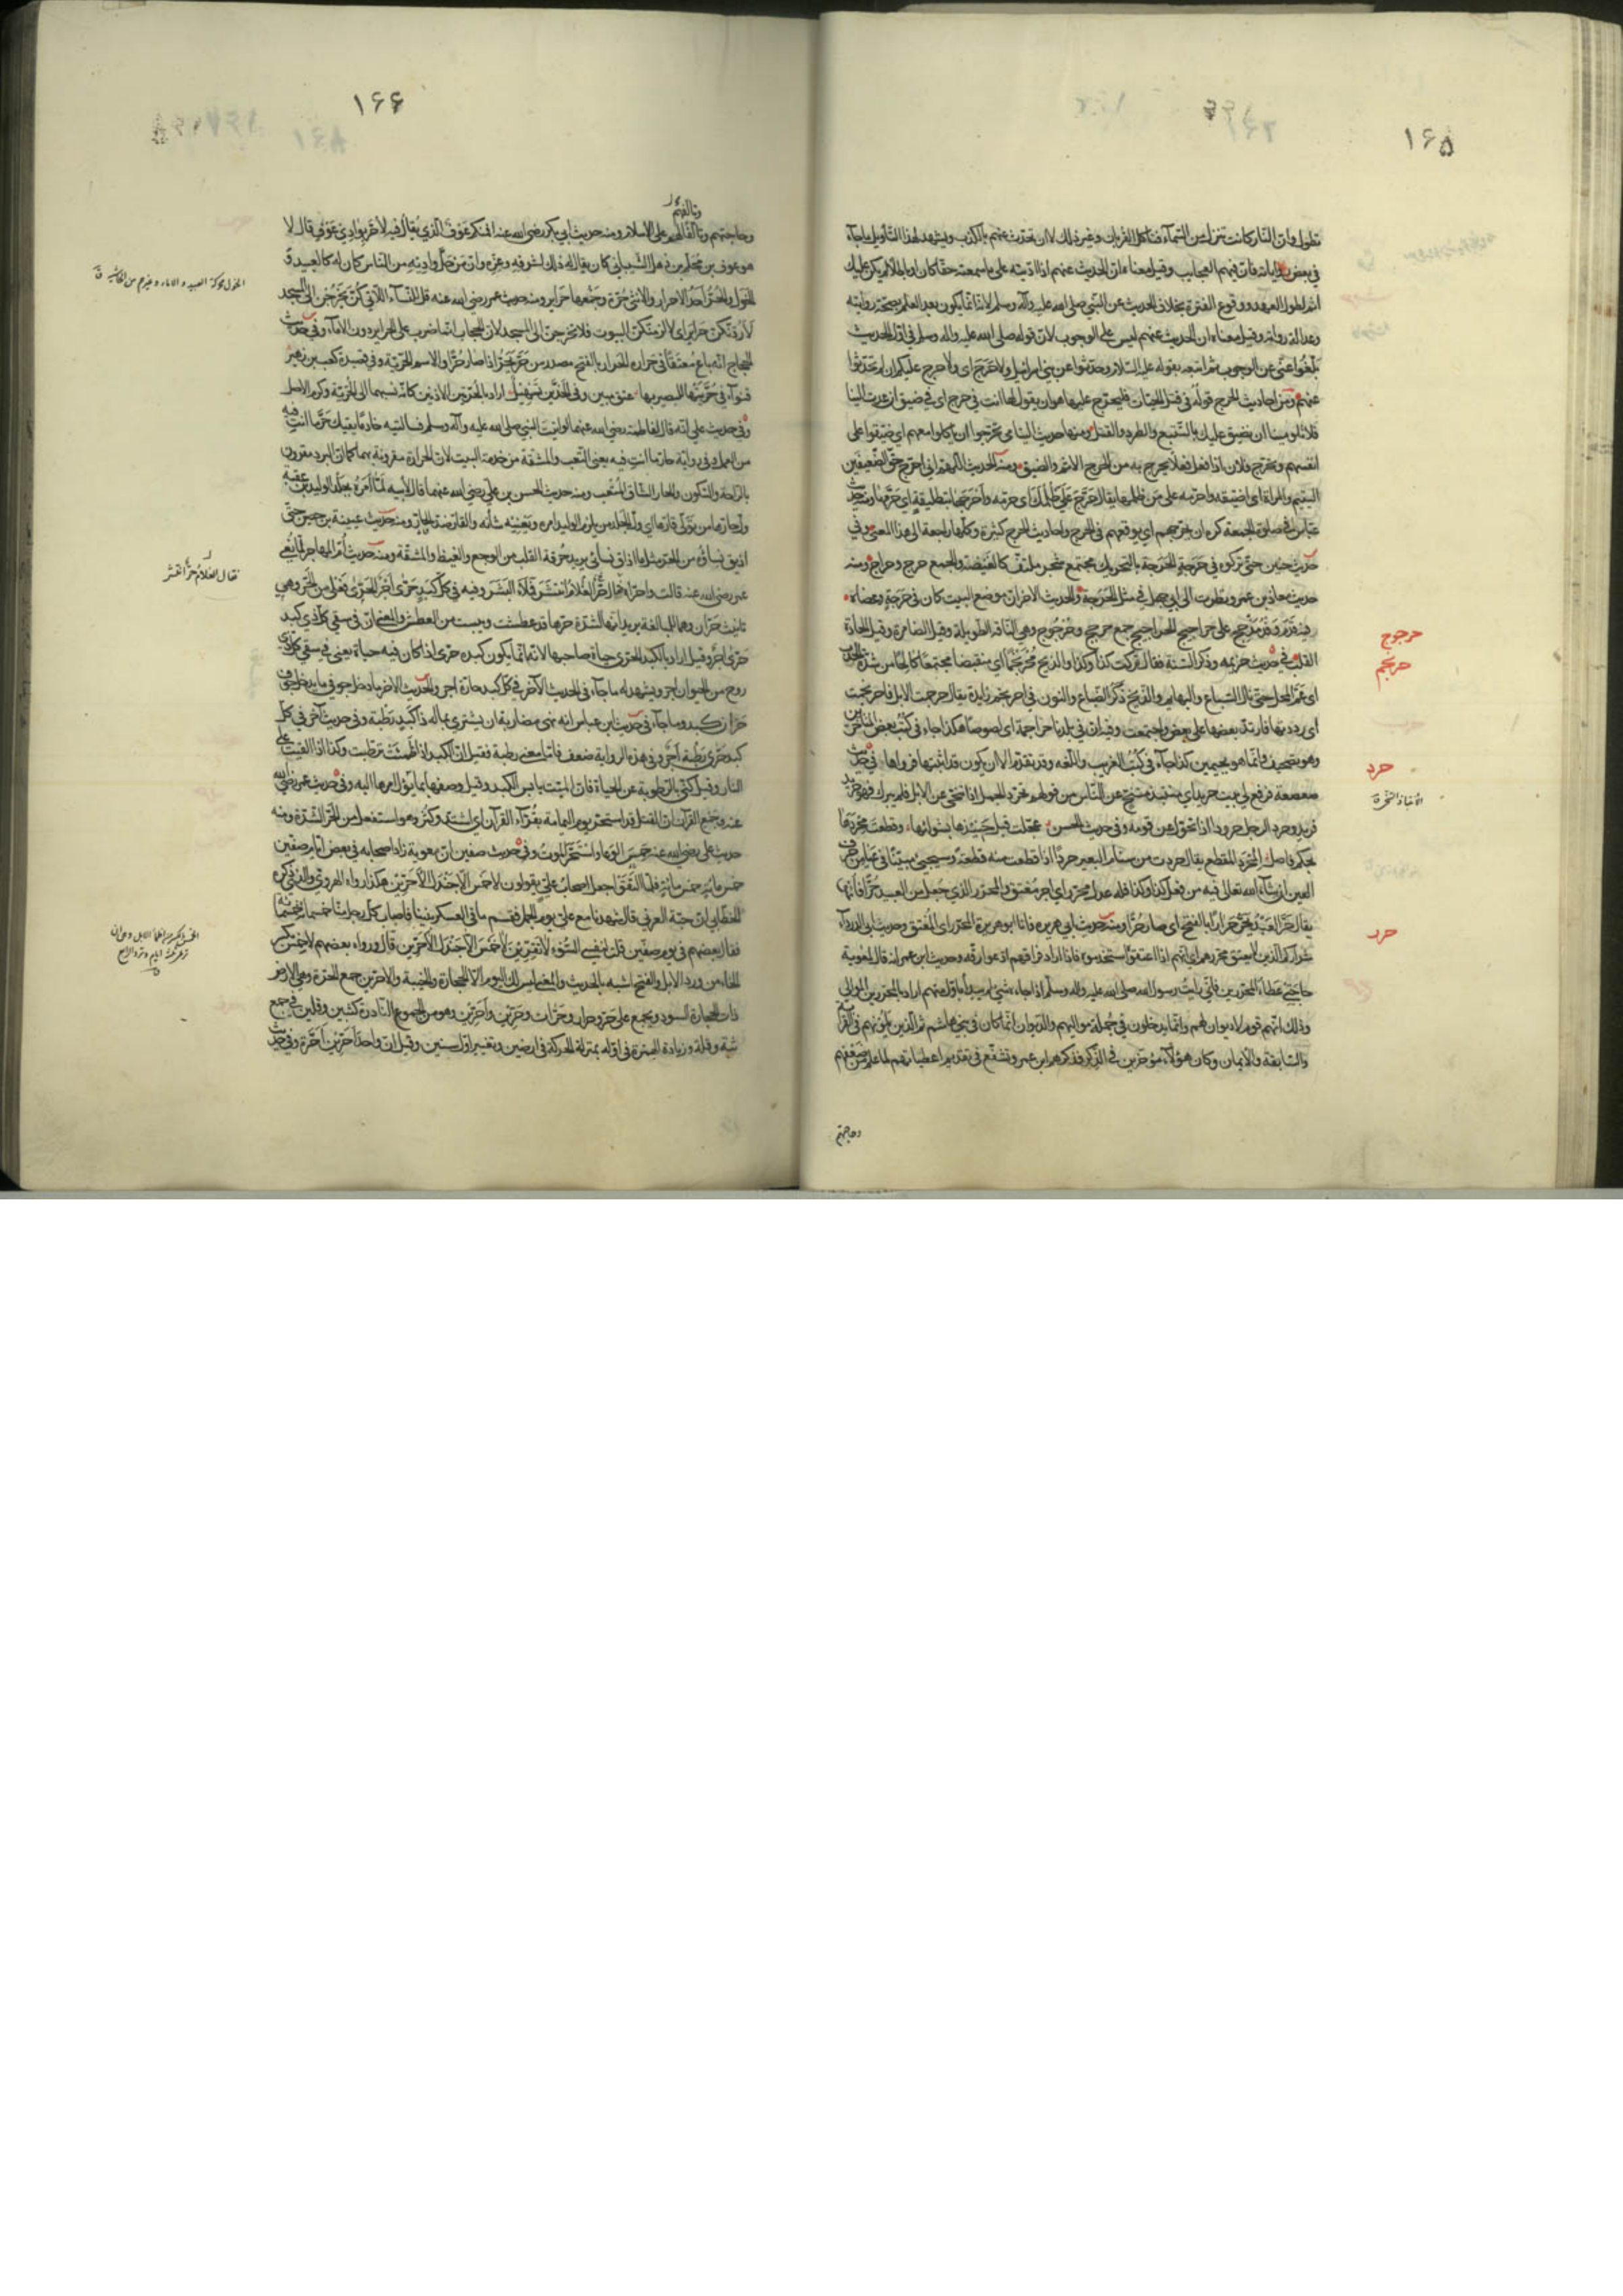 ۱۶۵
تطول وان النار كانت تنزل من السماء فتأكل القربان وغير ذلك لا ان يحدث عنهم بالكذب ويشهد لهذا التأويل ما جاء
في بعض رواياته فان فيهم العجايب وقيل معناه ان الحديث عنهم اذا اديته على ما سمعته حقا كان او باطلا لم يكن عليك
اثم لطول العهد ووقوع الفترة بخلاف الحديث عن النبي صلى الله عليه وآله وسلم لانه انما يكون بعد العلم بصحة روايته
وعدالة رواته وقيل معناه ان الحديث عنهم ليس على الوجوب لان قوله صلى الله عليه وآله وسلم في اول الحديث
بلغوا عني على الوجوب ثم اتبعه بقوله عليه السلام وحدثوا عن بني اسرائيل ولا حرج اى ولا حرج عليكم ان لم تحدثوا
عنهم ومن احاديث الحرج قوله في قتل الحيات فليحرج عليها هو ان يقول لها انت في حرج اى في ضيق ان عدت الينا
فلا تلومينا ان نضيق عليك بالتتبع والطرد والقتل ومنها حديث اليتامى تحرجوا ان يأكلوا معهم اى ضيقوا على
انفسهم وتحرج فلان اذا فعل فعلا يخرج به من الحرج الاثم والضيق ومنه الحديث اللهم اني احرج حق الضعيفين
اليتيم والمرأة اى اضيقه واحرمه على من ظلمها يقال حرج على ظلمك اى حرمه وأحرجها بتطليقة اى حرمها ومنه حديث
عباس في صلوة الجمعة كره ان يحرجهم اى يوقعهم في الحرج واحاديث الحرج كثيرة وكلها راجعة الى هذا المعنى وفي
حديث حنين حتى تركوه في حرجة الحرجة بالتحريك مجتمع شجر ملتف كالغيضة والجمع حرج وحراج ومنه
حديث معاذ بن عمرو نظرت الى ابي جهل في مثل الحرجة والحديث الاخر ان موضع البيت كان في حرجة وعضاه
حرجوج
فيه قدم وفد مذحج على حراجيج الحراجيج جمع حرجج وحرجوج وهي الناقة الطويلة وقيل الضامرة وقيل الحادة
حرجم
القلب في حديث خزيمة وذكر السنة فقال تركت كذا وكذا والذيخ محرنجما اى منقبضا مجتمعا كالحا من شدة الجدب
اى عم المحل حتى نال السباع والبهايم والذيخ ذكر الضباع والنون في احرنجم زايدة يقال حرجمت الابل فاحرنجمت
اى رددتها فارتد بعضها على بعض واجتمعت وفيه ان في بلدنا حراجمة اى لصوصا هكذا جاء في كتب بعض المتأخرين
حرد
وهو تصحيف وانما هو بجيمين كذا جاء في كتب الغريب واللغة وقد تقدم الا ان يكون قد اثبتها فرواها في حديث
صعصعة فرفع لي بيت حريد اى منتبذ متنح عن الناس من قولهم تحرد الجمل اذا تنحى عن الابل فلم يبرك فهو حريد
فريد وحرد الرجل حرودا اذا تحول عن قومه وفي حديث الحسن عجلت قبل حنيذها بشوائها وقطعت محردها
بحكم فاصل المحرد المقطع يقال حردت من سنام البعير حردا اذا قطعت منه قطعة وسيجيء مبينا في عيا من حرف
حرد
العين ان شاء الله تعالى فيه من فعل كذا وكذا فله عدل محرر اى اجر معتق المحرر الذي جعل من العبيد حرا فاعتق
يقال حر العبد يحر حرارا بالفتح اى صار حرا ومنه حديث ابي هريرة فانا ابو هريرة المحرر اى المعتق وحديث ابي الدرداء
شراركم الذين لا يعتق محررهم اى انهم اذا اعتقوا استخدموه فاذا اراد فراقهم ادعوا رقه وحديث ابن عمر انه قال لمعوية
حاجتي عطاء المحررين فاني رايت رسول الله صلى الله عليه وآله وسلم اذا جاءه شيء لم يبدأ باول منهم اراد بالمحررين الموالي
وذلك انهم قوم لا ديوان لهم وانما يدخلون في جملة مواليهم والديوان انما كان في بني هاشم ثم الذين يلونهم في القرابة
والسابقة والايمان وكان هؤلاء مؤخرين في الذكر فذكرهم ابن عمر وتشفع في تقديم اعطياتهم لما علم من ضعفهم
وحاجتهم
۱۶۶
وحاجتهم وتألفا لهم على الاسلام ومنه حديث ابي بكر رضي الله عنه افمنكم عوف الذي يقال فيه لا حر بوادي عوف قال لا
هو عوف بن محلم بن ذهل الشيباني كان يقال له ذلك لشرفه وعزه وان من حل واديه من الناس كان له كالعبيد
الخول والحر احد الاحرار والانثى حرة وجمعها حراير ومنه حديث عمر رضي الله عنه قال للنساء اللاتي كن يخرجن الى المسجد
لاردنكن حراير اى لالزمنكن البيوت فلا تخرجن الى المسجد لان الحجاب انما ضرب على الحراير دون الاماء وفي حديث
الحجاج انه باع معتقا في حراره الحرار بالفتح مصدر من حر يحر اذا صار حرا والاسم الحرية وفي قصيدة كعب بن زهير
قنواء في حرتيها للبصير بها عتق مبين وفي الخدين تسهيل اراد بالحرتين الاذنين كانه نسبهما الى الحرية وكرم الاصل
وفي حديث علي انه قال لفاطمة رضي الله عنهما لو اتيت النبي صلى الله عليه وآله وسلم فسالتيه خادما يقيك حر ما انت فيه
من العمل وفي رواية حار ما انت فيه يعنى التعب والمشقة من خدمة البيت لان الحرارة مقرونة بهما كما ان البرد مقرون
بالراحة والسكون والحار الشاق المتعب ومنه حديث الحسن بن علي رضي الله عنهما قال لابيه لما أمره بجلد الوليد بن عقبة
ول حارها من تولى قارها اى ول الجلد من يلزم الوليد امره ويعنيه شأنه والقار ضد الحار ومنه حديث عيينة بن حصن حتى
اذيق نساؤه من الحر مثل ما اذاق نسائي يريد حرقة القلب من الوجع والغيظ والمشقة ومنه حديث أم المهاجر لما نعي
عمر رضي الله عنه قالت واحراه فقال حر انتشر فملأ البشر وفيه في كل كبد حرى أجر الحرى فعلى من الحر وهي
تانيث حران وهما للمبالغة يريد انها لشدة حرها قد عطشت ويبست من العطش والمعنى ان في سقي كل ذي كبد
حرى اجرا وقيل اراد بالكبد الحرى حياة صاحبها لانه انما يكون كبده حرى اذا كان فيه حياة يعنى في سقي كل ذي
روح من الحيوان اجر ويشهد له ما جاء في الحديث الآخر في كل كبد حارة اجر والحديث الآخر ما دخل جوفي ما يدخل جوف
حران كبد وما جاء في حديث ابن عباس انه نهى مضاربه ان يشتري بماله ذا كبد رطبة وفي حديث آخر في كل
كبد حرى رطبة أجر وفي هذه الرواية ضعف فاما معنى رطبة فقيل ان الكبد اذا ظمئت ترطبت وكذا اذا القيت على
النار وقيل كنى بالرطوبة عن الحياة فان الميت يابس الكبد وقيل وصفها بما يؤل امرها اليه وفي حديث عمر رضي الله
عنه وجمع القرآن ان القتل قد استحر يوم اليمامة بقراء القرآن اى اشتد وكثر وهو استفعل من الحر الشدة ومنه
حديث علي رضي الله عنه حمس الوغا واستحر الموت وفي حديث صفين ان معوية زاد اصحابه في بعض ايام صفين
خمس مائة خمس مائة فلما التقوا جعل اصحاب علي يقولون لا خمس الا جندل الاحرين هكذا رواه الهروي والذي ذكره
الخطابي ان حبة العرني قال شهدنا مع علي يوم الجمل فقسم ما في العسكر بيننا فاصاب كل رجل منا خمس مائة خمس مائة
فقال بعضهم في يوم صفين قلت لنفسي السوء لا تفرين لا خمس الا جندل الاحرين قال ورواه بعضهم لا خمس بكسر
الخاء من ورد الابل والفتح اشبه بالحديث والمعنى ليس لك اليوم الا الحجارة والخيبة والاحرين جمع الحرة وهي الارض
ذات الحجارة السود ويجمع على حر وحرار وحرات وحرين واحرين وهو من الجموع النادرة كثبين وقلين في جمع
ثبة وقلة وزيادة الهمزة في اوله بمنزلة الحركة في ارضين وتغيير اول سنين وقيل ان واحد احرين احرة وفي حديث
الخول محركة العبيد والاماء وغيرهم من الحاشية ق
فقال الغلام حر انتشر